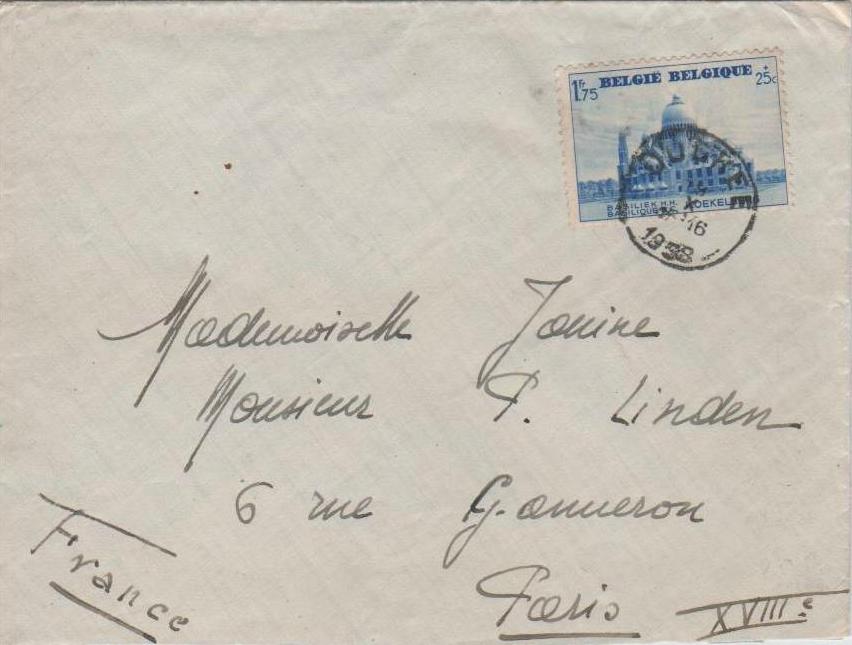 1Fr 75 BELGIË BELGIQUE + 25c
BASILIEK H.H. KOEKEL
BASILIQUE
16
1938
Mademoiselle Janine
Monsieur P. Linden
6 rue Ganneron
Paris XVIIIe
France